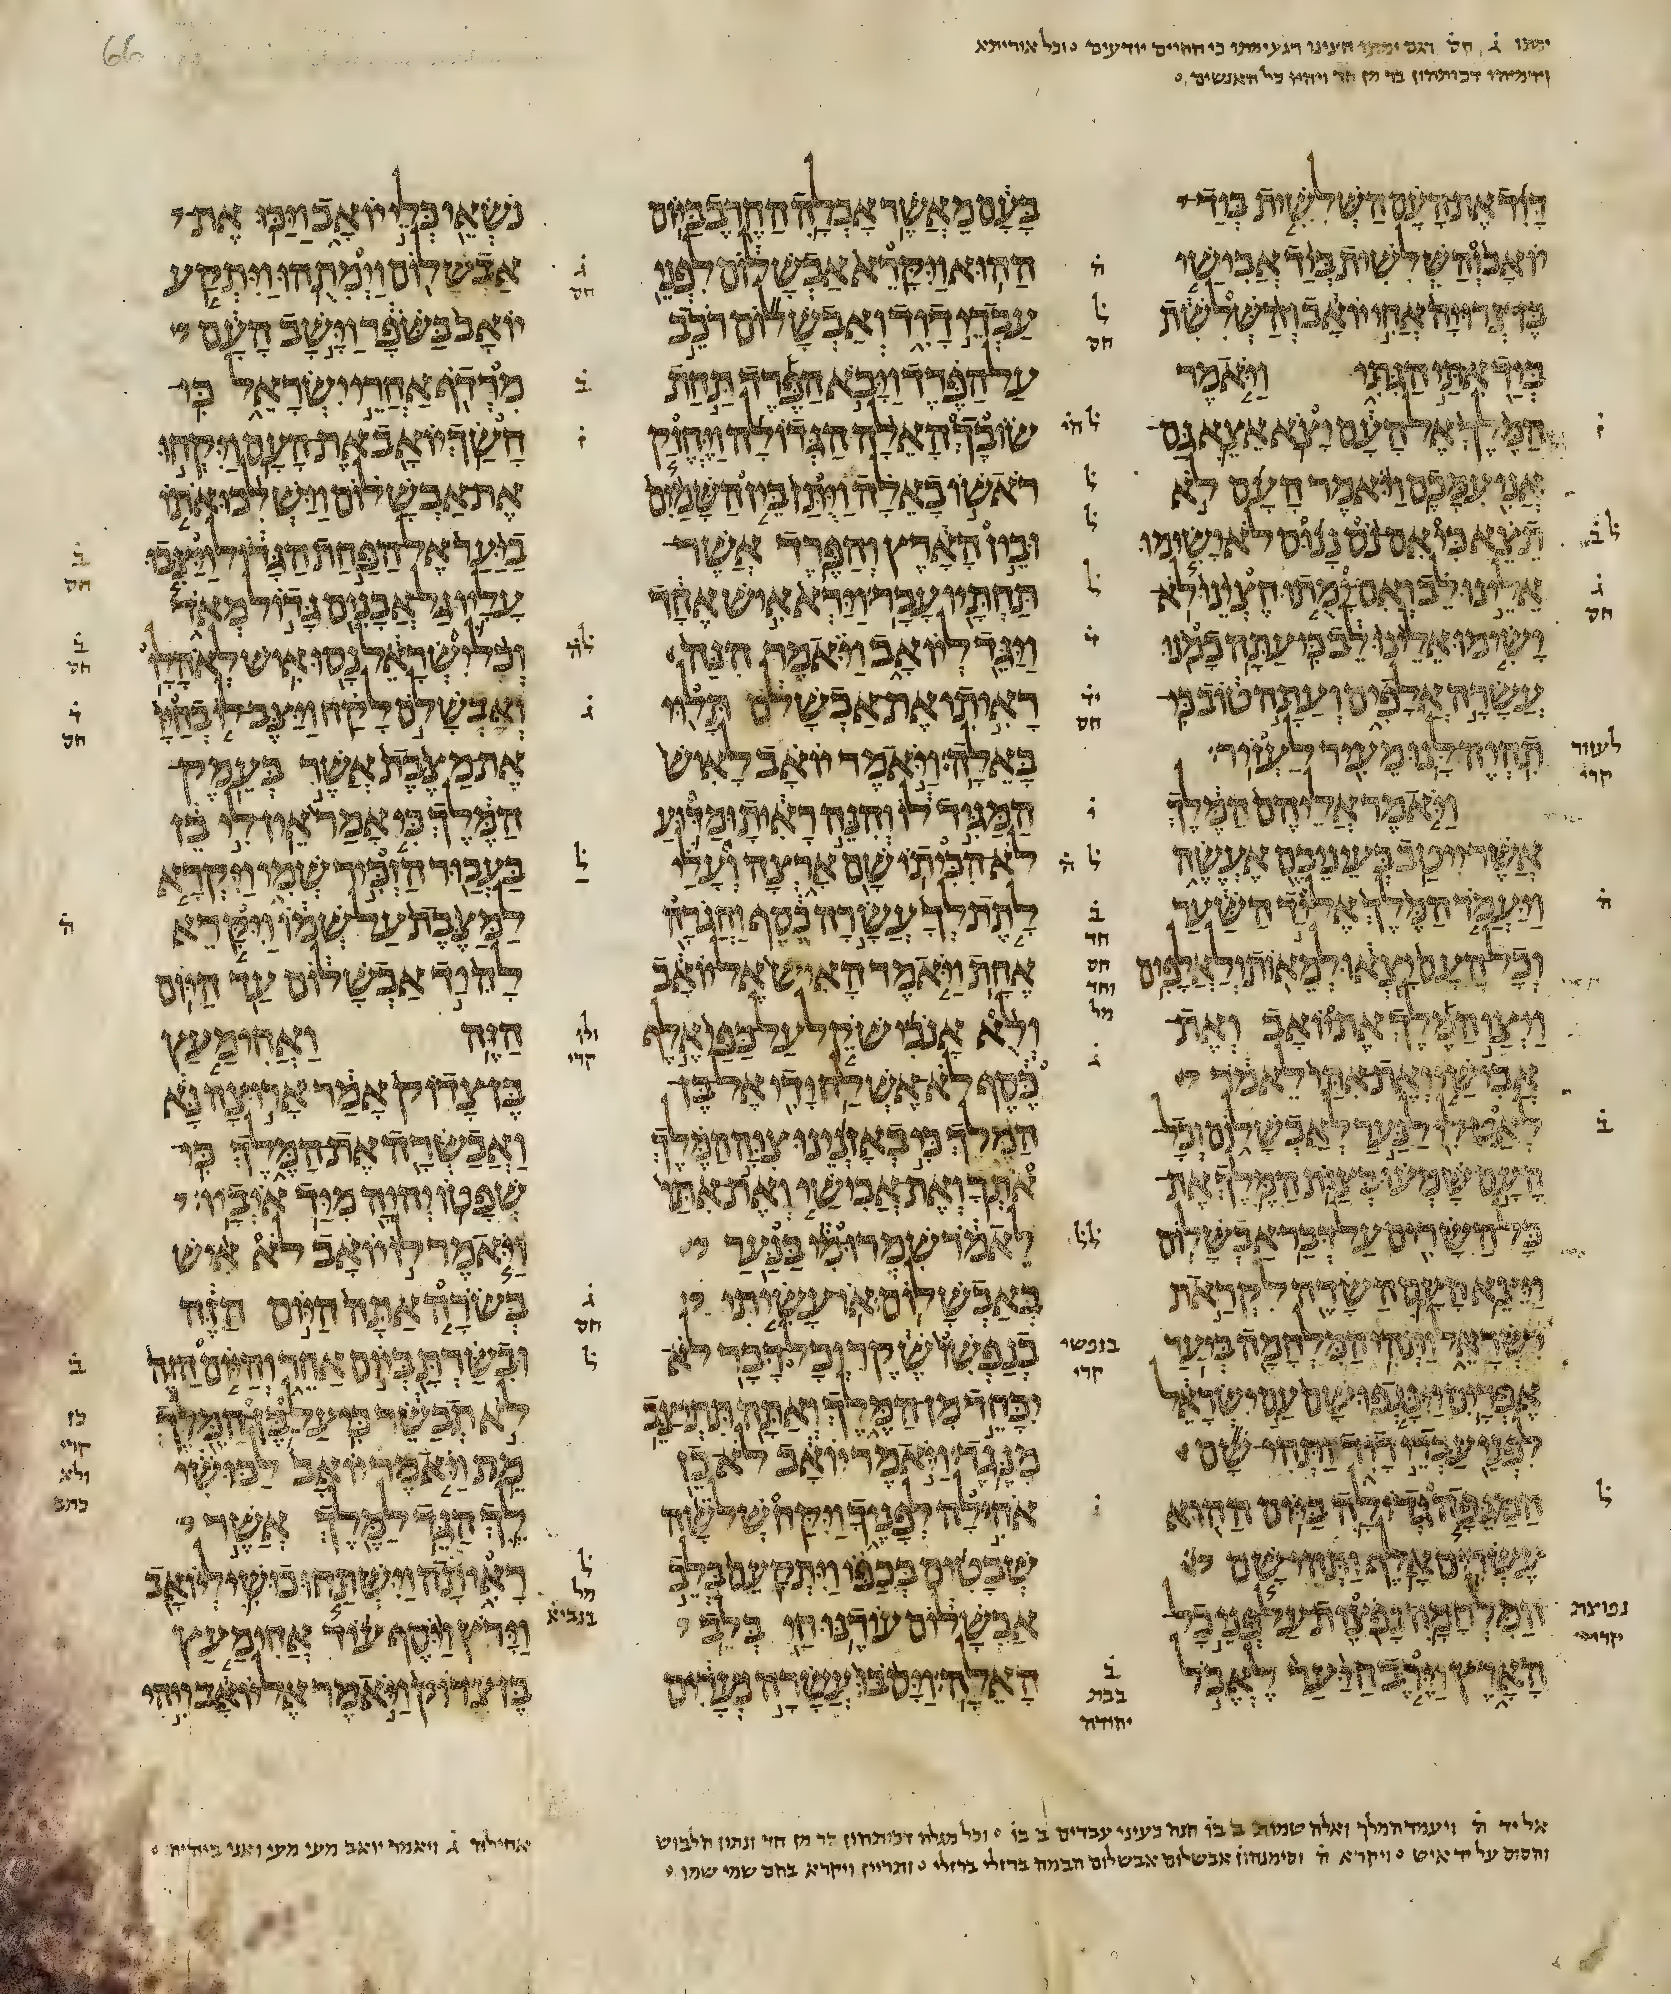 ימתו ג֗ חס֗ וגם ימתו חצינו רגעימתו כי החיים יודעים ׃ וכל אוריתא
ודמיהו דכותהון בר מן חד ויהיו כל האנשים ׃
דוד את העם השלשית ביד
יואב והשלשית ביד אבישי
בן צרויה אחי יואב והשלשת
ביד אתי הגתי ויאמר
המלך אל העם יצא אצא גם
אני עמכם ויאמר העם לא
תצא כי אם נס ננוס לא ישימו
אלינו לב ואם ימתו חצינו לא
ישימו אלינו לב כי עתה כמנו
עשרה אלפים ועתה טוב כי
תהיה לנו מעיר לעזיר׃
ויאמר אליהם המלך
אשר ייטב בעיניכם אעשה
ויעמד המלך אל יד השער
וכל העם יצאו למאות ולאלפים
ויצו המלך את יואב ואת
אבישי ואת אתי לאמר
לאט לי לנער לאבשלום וכל
העם שמעו בצות המלך את
כל השרים על דבר אבשלום
ויצא העם השדה לקראת
ישראל ותהי המלחמה ביער
אפרים וינגפו שם עם ישראל
לפני עבדי דוד ותהי שם
המגפה גדולה ביום ההוא
עשרים אלף ותהי שם
המלחמה נפצית על פני כל
הארץ וירב היער לאכל
לעזור
קרי
נפוצת
קרי
בעם מאשר אכלה החרב ביום
ההוא ויקרא אבשלום לפני
עבדי דוד ואבשלום רכב
על הפרד ויבא הפרד תחת
שובך האלה הגדולה ויחזק
ראשו באלה ויתן בין השמים
ובין הארץ והפרד אשר
תחתיו עבר וירא איש אחד
ויגד ליואב ויאמר הנה
ראיתי את אבשלם תלוי
באלה ויאמר יואב לאיש
המגיד לו והנה ראית ומדוע
לא הכיתו שם ארצה ועלי
לתת לך עשרה כסף וחגרה
אחת ויאמר האיש אל יואב
ולא אנכי שקל על כפי אלף
כסף לא אשלח ידי אל בן
המלך כי באזנינו צוה המלך
אתך ואת אבישי ואת אתי
לאמר שמרו מי בנער
באבשלום׃ או עשיתי
בנפשו שקר וכל דבר לא
יכחד מן המלך ואתה תתיצב
מנגד ויאמר יואב לא כן
אחילה לפניך ויקח שלשה
שבטים בכפו ויתקעם בלב
אבשלום עודנו חי בלב
האלה׃ ויסבו עשרה נערים
ה֗
ל֗
חס
ל֗
ל֗
ל֗
ל֗
ד֗
יד֗
חס
ל֗ ה֗
ב֗
חד
חס
וחד
מל
ג֗
בנפשי
קרי
ב֗
בבת
יהודה
נשאי כלי יואב ויכו את
אבשלום וימיתהו ויתקע
יואב בשפר וישב העם
מרדף אחרי ישראל כי
חשך יואב את העם ויקחו
את אבשלום וישלכו אתו
ביער אל הפחת הגדול ויצבו
עליו גל אבנים גדול מאד
וכל ישראל נסו איש לאהלו
ואבשלם לקח ויצב לו בחיו
את מצבת אשר בעמק
המלך כי אמר אין לי בן
בעבור הזכיר שמי ויקרא
למצבת על שמו ויקרא
לה יד אבשלום עד היום
הזה ואחימעץ
בן צדוק אמר ארוצה נא
ואבשרה את המלך כי
שפטו יהוה מיד איביו׃
ויאמר לו יואב לא איש
בשרה אתה היום הזה
ובשרת ביום אחר והיום הזה
לא תבשר כי על בן המלך
מת ויאמר יואב לכושי
לך הגד למלך אשר
ראיתה וישתחו כושי ליואב
וירץ ויסף עוד אחימעץ
בן צדוק ויאמר אל יואב ויהי
ג֗
חס
ב֗
ז֗
ל֗ה
ג֗
ל֗
ולו
קרי
ג֗
חס
ל֗
ל֗
מל
בנביא
ב֗
חס
ב֗
חס
ד֗
חס
ה֗
ב֗
כן
קרי
ולא
כתב
אל יד ה֗ ויעמד המלך ואלה שמות ב בו֗ הנה כעיני עבדים ב בו֗ ׃ וכל מגלה דכותהון בר מן חד ונתון הלבוש
והסוס על יד איש ׃ ויקרא ה֗ וסימנהון אבשלום אבשלום הבמה ברזלי ברזלי ׃ ותריין ויקרא בהם שמי שמו ׃
אחילה ג֗ ויאמר יואב מעי מעי ואני ביהיה ׃